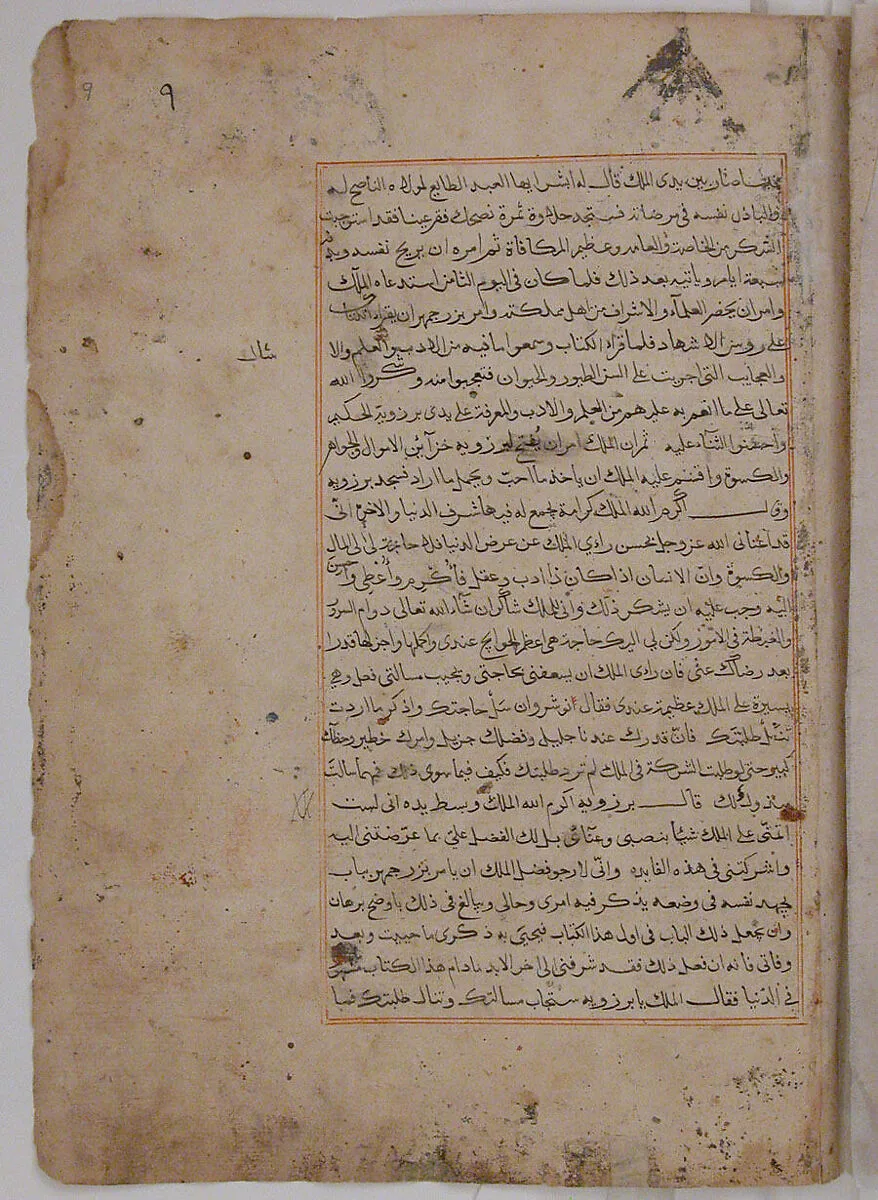 9 ٩
صار بين يدى الملك قال له ابشر ايها العبد الطايع لمولاه الناصح له
والباذل نفسه فى مرضاته فستجد حلاوة ثمرة نصحك فقر عينا فقد استوجبت
الشكر من الخاصة والعامه وعظيم المكافاة ثم امره ان يريح نفسه
سبعة ايام وياتيه بعد ذلك فلما كان فى اليوم الثامن استدعاه الملك
وامر ان يحضر العلمآء والاشراف من اهل مملكته وامر بزرجمهر ان يقراء الكتاب
على روس الاشهاد فلما قراء الكتاب وسمعوا ما فيه من الادب والعلم
والعجايب التى اجريت على السن الطيور والحيوان فتعجبوا منه وشكروا الله
تعالى على ما انعم به عليهم من العلم والادب والمعرفة على يدى برزويه الحكيم
واحسنوا الثناء عليه ثم ان الملك امر ان يفتح لبرزويه خزآئن الاموال والجواهر
والكسوة واقسم عليه الملك ان ياخذ ما احب ويحمل ما اراد فسجد برزويه
وقال اكرم الله الملك كرامة يجمع له فيها شرف الدنيا والاخرة انى
قد اغنانى الله عز وجل بحسن راى الملك عن عرض الدنيا فلا حاجة لى الى المال
والكسوة وان الانسان اذا كان ذا ادب وعقل فاكرم واعطى واحسن
اليه وجب عليه ان يشكر ذلك وانى للملك شاكر ان شاء الله تعالى دوام السرور
والغبطة فى الامور ولكن لى اليك حاجة هى اعظم الحوايج عندى واكملها واجزلها قدرا
بعد رضاك عنى فان راى الملك ان يسعفنى بحاجتى ويجيب مسالتى فعل وهى
يسيرة على الملك عظيمة عندى فقال انوشروان سل حاجتك واذكر ما اردت
تنل طلبتك فان قدرك عندنا جليل وفضلك جزيل وامرك خطير وحقك
كبير حتى لو طلبت الشركة فى الملك لم ترد طلبتك فكيف فيما سوى ذلك فمهما سالت
مبذول لك قال برزويه اكرم الله الملك وبسط يده انى لست
امتن على الملك شيأ بنصبى وعنائى بل لك الفضل على بما عرضتنى اليه
واشركتنى فى هذه الفايده وانى لارجو فضل الملك ان يامر بزرجمهر بباب
يجهد نفسه فى وضعه يذكر فيه امرى وحالى ويبالغ فى ذلك باوضح برهان
وان يجعل ذلك الباب فى اول هذا الكتاب فيحيى به ذكرى ما حييت وبعد
وفاتى فانه ان فعل ذلك فقد شرفنى الى اخر الابد ما دام هذا الكتاب
فى الدنيا فقال الملك يا برزويه ستجاب مسالتك وتنال طلبتك